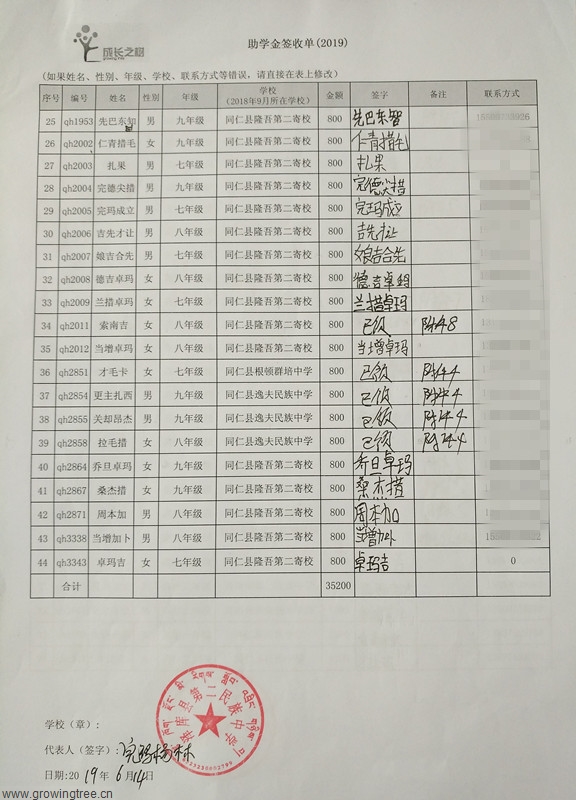 成长之树
助学金签收单(2019)
(如果姓名、性别、年级、学校、联系方式等错误，请直接在表上修改)
序号 编号 姓名 性别 年级 学校 (2018年9月所在学校) 金额 签字 备注 联系方式
25 qh1953 先巴东知 男 九年级 同仁县隆吾第二寄校 800 先巴东智
26 qh2002 仁青措毛 女 九年级 同仁县隆吾第二寄校 800 仁青措毛
27 qh2003 扎果 男 七年级 同仁县隆吾第二寄校 800 扎果
28 qh2004 完德尖措 男 九年级 同仁县隆吾第二寄校 800 完德尖措
29 qh2005 完玛成立 男 七年级 同仁县隆吾第二寄校 800 完玛成立
30 qh2006 吉先才让 男 八年级 同仁县隆吾第二寄校 800 吉先才让
31 qh2007 娘吉合先 男 七年级 同仁县隆吾第二寄校 800 娘吉合先
32 qh2008 德吉卓玛 女 八年级 同仁县隆吾第二寄校 800 德吉卓玛
33 qh2009 兰措卓玛 女 七年级 同仁县隆吾第二寄校 800 兰措卓玛
34 qh2011 索南吉 女 八年级 同仁县隆吾第二寄校 800 已领 附48
35 qh2012 当增卓玛 女 八年级 同仁县隆吾第二寄校 800 当增卓玛
36 qh2851 才毛卡 女 七年级 同仁县根顿群培中学 800 已领 附44
37 qh2854 更主扎西 男 九年级 同仁县逸夫民族中学 800 已领 附44
38 qh2855 关却昂杰 男 八年级 同仁县逸夫民族中学 800 已领 附44
39 qh2858 拉毛措 女 八年级 同仁县逸夫民族中学 800 已领 附44
40 qh2864 乔旦卓玛 女 九年级 同仁县隆吾第二寄校 800 乔旦卓玛
41 qh2867 桑杰措 女 九年级 同仁县隆吾第二寄校 800 桑杰措
42 qh2871 周本加 男 八年级 同仁县隆吾第二寄校 800 周本加
43 qh3338 当增加卜 男 八年级 同仁县隆吾第二寄校 800 当增加卜
44 qh3343 卓玛吉 女 七年级 同仁县隆吾第二寄校 800 卓玛吉 0
合计 35200
第二民族中学
学校（章）：
代表人（签字）：完玛杨林
日期:2019年6月14日
www.growingtree.cn